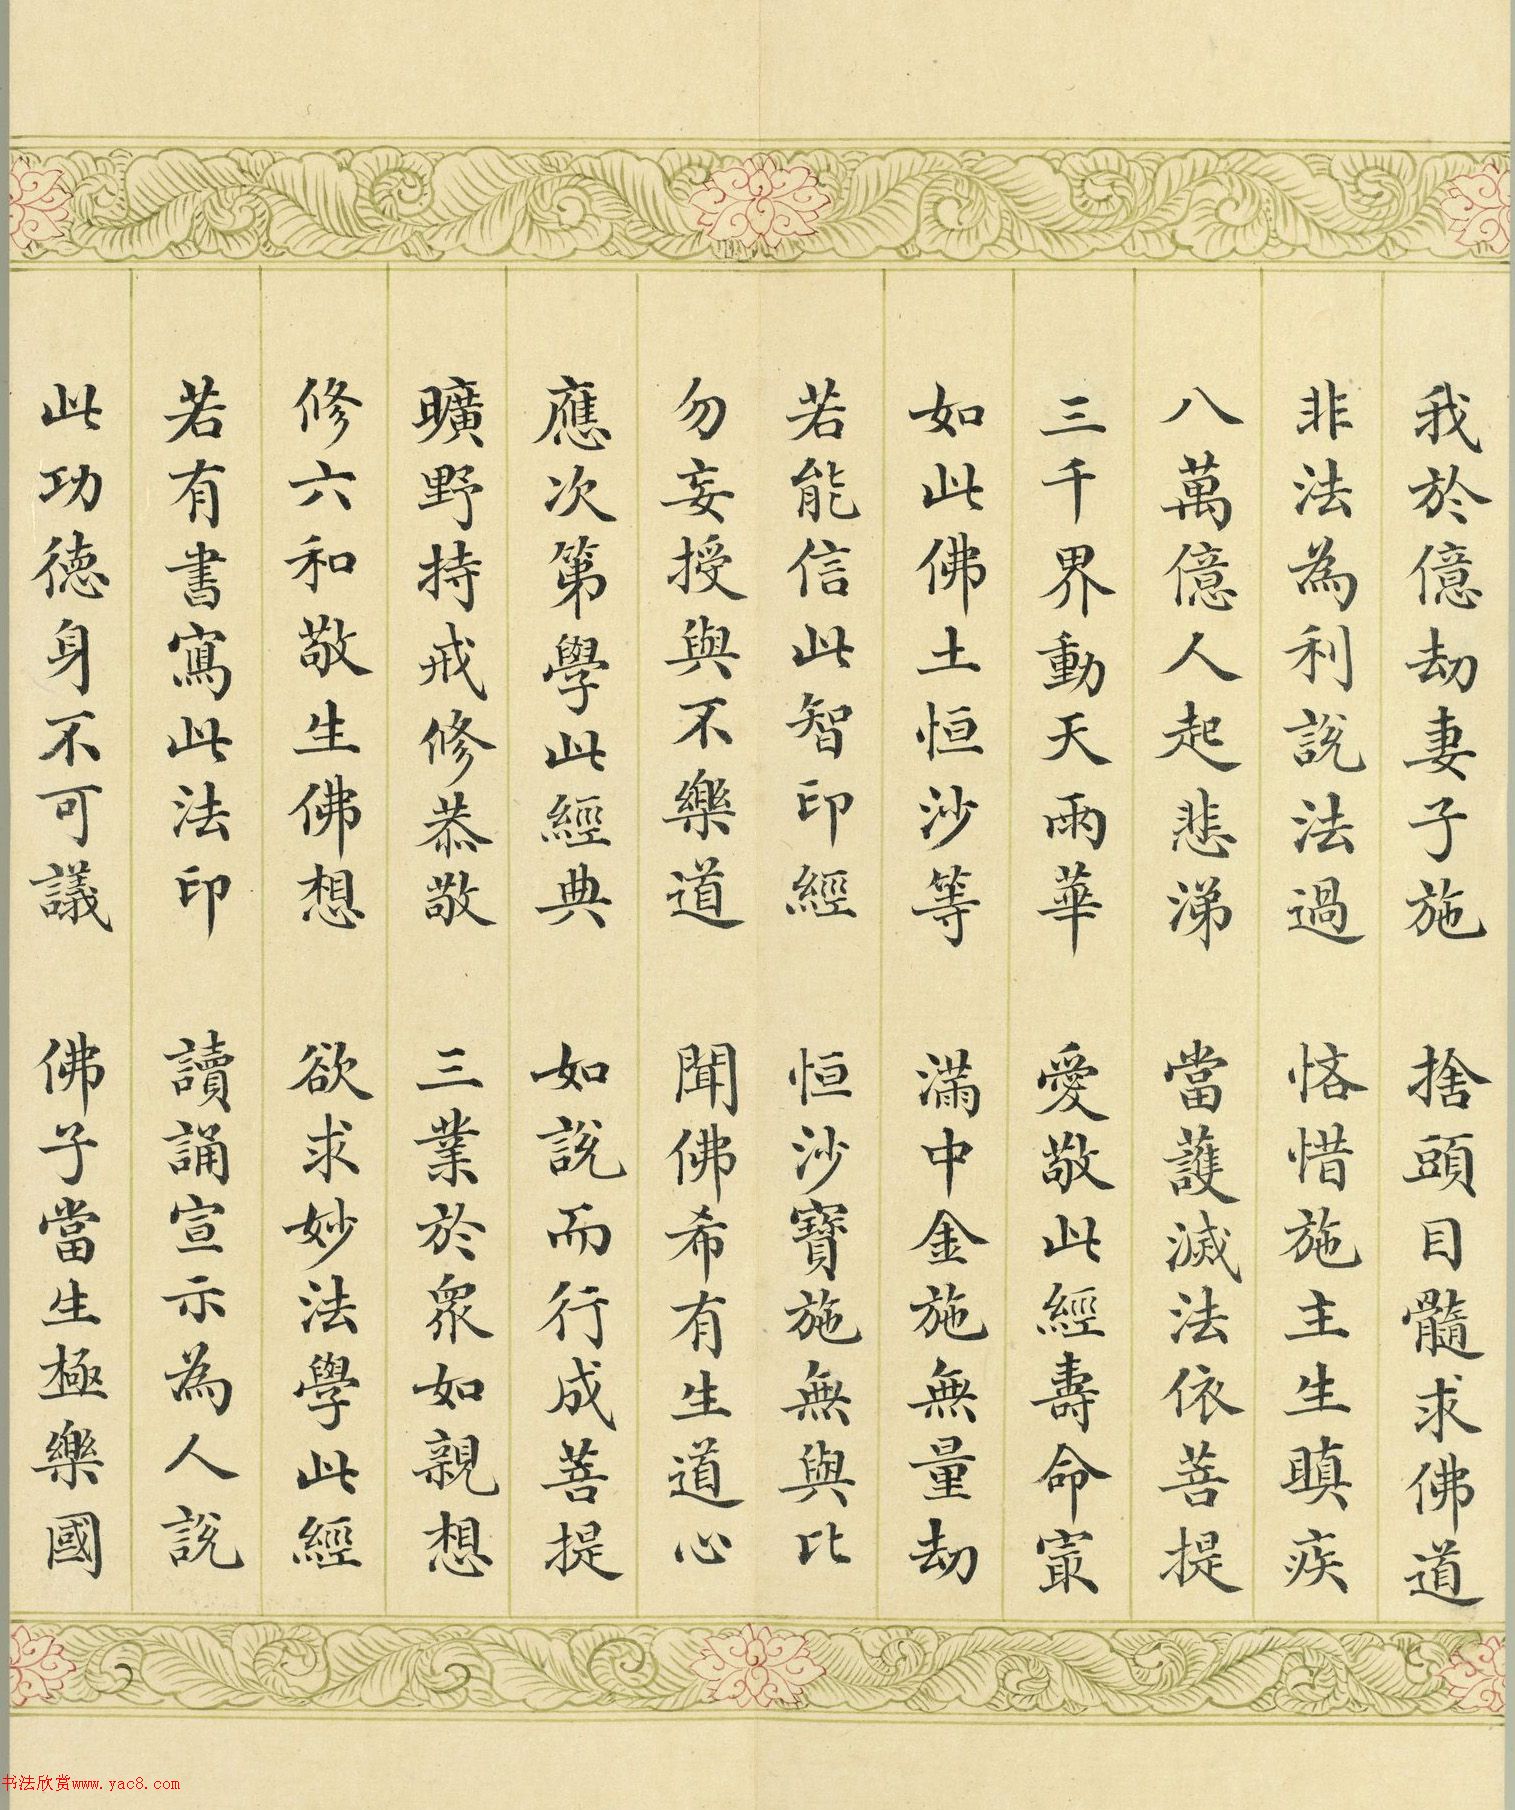 我於億劫妻子施　捨頭目髓求佛道
非法為利說法過　悋惜施主生瞋疾
八萬億人起悲涕　當護滅法依菩提
三千界動天雨華　愛敬此經壽命寂
如此佛土恒沙等　滿中金施無量劫
若能信此智印經　恒沙寶施無與比
勿妄授與不樂道　聞佛希有生道心
應次第學此經典　如說而行成菩提
曠野持戒修恭敬　三業於眾如親想
修六和敬生佛想　欲求妙法學此經
若有書寫此法印　讀誦宣示為人說
此功德身不可議　佛子當生極樂國
书法欣赏www.yac8.com